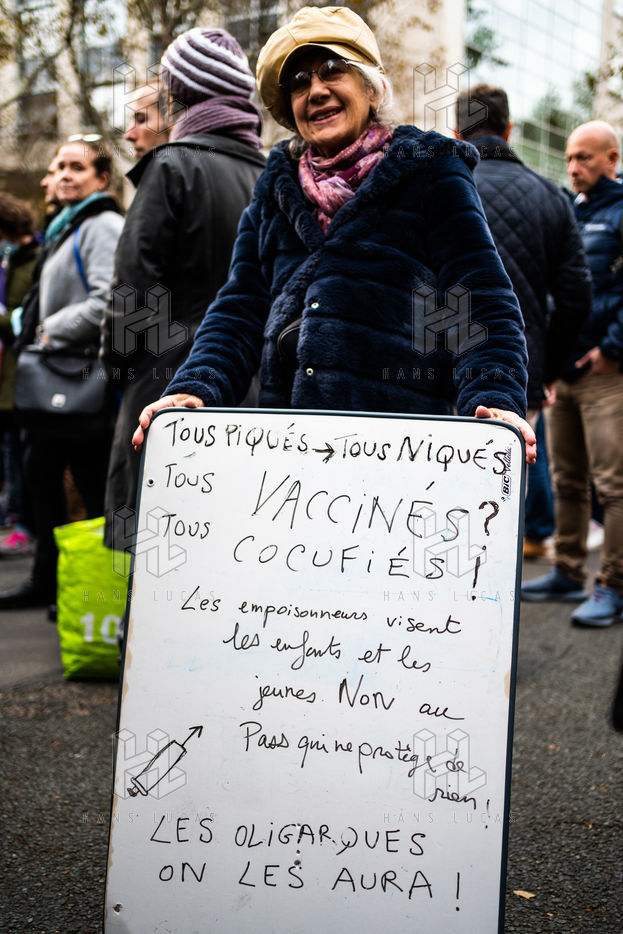 TOUS PIQUÉS → TOUS NIQUÉS
TOUS VACCINÉS?
TOUS COCUFIÉS!
Les empoisonneurs visent
les enfants et les
jeunes. Non au
Pass qui ne protège de
rien!
LES OLIGARQUES
ON LES AURA!
BIC Velleda
10
HANS LUCAS
HANS LUCAS
HANS LUCAS
HANS LUCAS
HANS LUCAS
HANS LUCAS
HANS LUCAS
HANS LUCAS